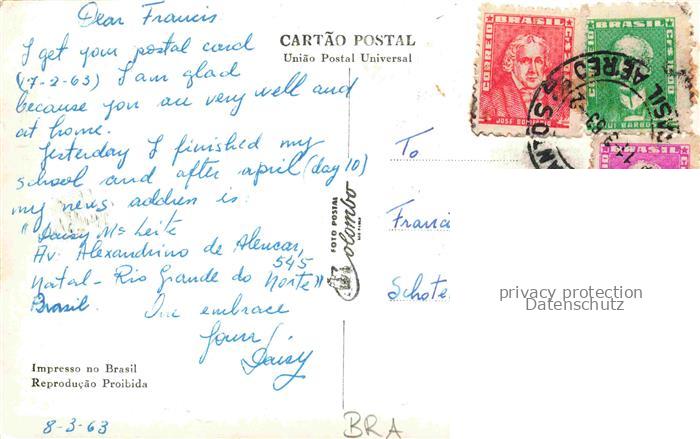 Dear Francis
I get your postal card
(17-2-63) I am glad
because you are very well and
at home.
Yesterday I finished my
school and after april (day 10)
my news address is:
"Daisy Mc Leite
Av: Alexandrino de Alencar,
545
Natal - Rio Grande do Norte"
Brasil. One embrace
Yours!
Daisy
Impresso no Brasil
Reprodução Proibida
8-3-63
CARTÃO POSTAL
União Postal Universal
FOTO POSTAL
Colombo
BRASIL
CORREIO
JOSÉ BONIFACIO
BRASIL
CORREIO
RUI BARBOSA
BRASIL
AEREO
SANTOS
To
Franci
Schote
privacy protection
Datenschutz
BRA